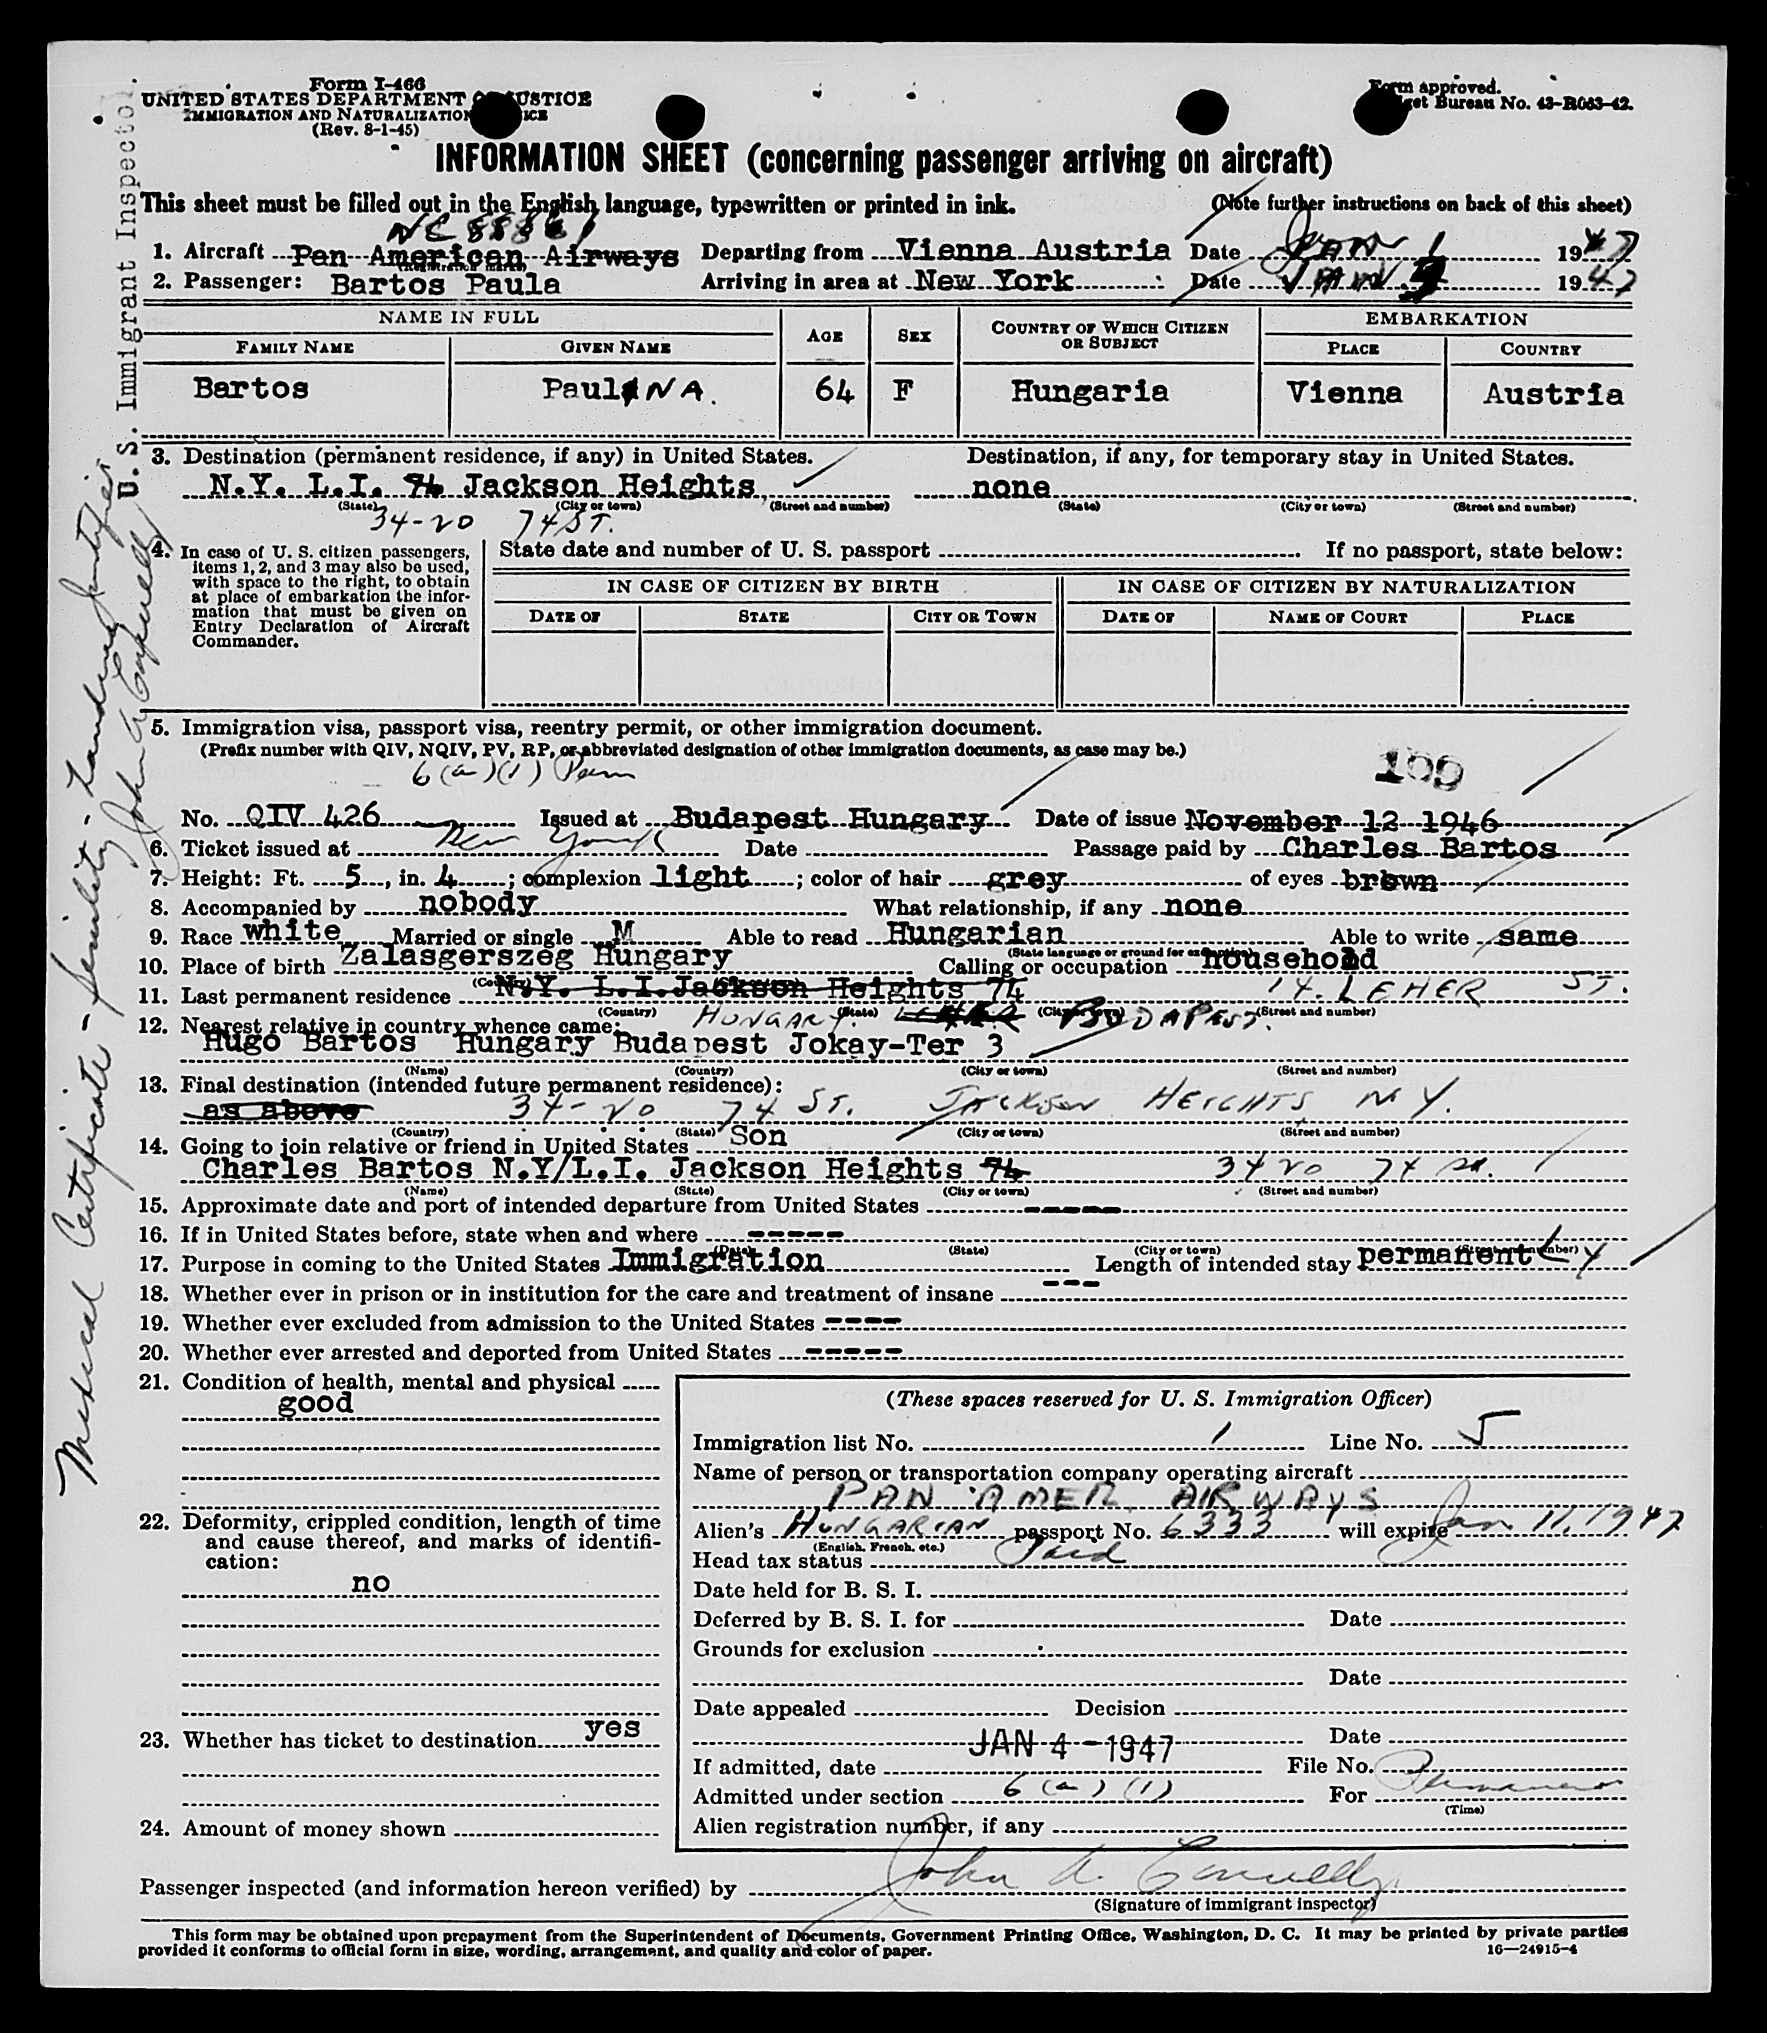 Form I-466
UNITED STATES DEPARTMENT OF JUSTICE
IMMIGRATION AND NATURALIZATION SERVICE
(Rev. 8-1-45)
Form approved.
Budget Bureau No. 43-R083-42.
INFORMATION SHEET (concerning passenger arriving on aircraft)
This sheet must be filled out in the English language, typewritten or printed in ink. (Note further instructions on back of this sheet)
NC 88861
1. Aircraft Pan American Airways Departing from Vienna Austria Date Jan 1 1947
(Registration marks)
2. Passenger: Bartos Paula Arriving in area at New York Date JAN 1947
NAME IN FULL AGE SEX COUNTRY OF WHICH CITIZEN OR SUBJECT EMBARKATION
FAMILY NAME GIVEN NAME PLACE COUNTRY
Bartos PaulINA. 64 F Hungaria Vienna Austria
3. Destination (permanent residence, if any) in United States. Destination, if any, for temporary stay in United States.
N.Y. L.I. 74 Jackson Heights none
(State) (City or town) (Street and number) (State) (City or town) (Street and number)
34-20 74 ST.
4. In case of U. S. citizen passengers, items 1, 2, and 3 may also be used, with space to the right, to obtain at place of embarkation the information that must be given on Entry Declaration of Aircraft Commander.
State date and number of U. S. passport If no passport, state below:
IN CASE OF CITIZEN BY BIRTH IN CASE OF CITIZEN BY NATURALIZATION
DATE OF STATE CITY OR TOWN DATE OF NAME OF COURT PLACE
5. Immigration visa, passport visa, reentry permit, or other immigration document.
(Prefix number with QIV, NQIV, PV, RP, or abbreviated designation of other immigration documents, as case may be.)
6(a)(1) Perm
No. QIV 426 Issued at Budapest Hungary Date of issue November 12 1946
6. Ticket issued at New York Date Passage paid by Charles Bartos
7. Height: Ft. 5, in. 4; complexion light; color of hair grey of eyes brown
8. Accompanied by nobody What relationship, if any none
9. Race white Married or single M Able to read Hungarian Able to write same
(State language or ground for exemption)
10. Place of birth Zalasgerszeg Hungary Calling or occupation household
(Country)
11. Last permanent residence N.Y. L.I. Jackson Heights 74 14. LEHER ST.
(Country) (State) (City or town) (Street and number)
HUNGARY. BUDAPEST.
12. Nearest relative in country whence came:
Hugo Bartos Hungary Budapest Jokay-Ter 3
(Name) (Country) (City or town) (Street and number)
13. Final destination (intended future permanent residence):
as above 34-20 74 ST. JACKSON HEIGHTS N.Y.
(Country) (State) (City or town) (Street and number)
14. Going to join relative or friend in United States Son
Charles Bartos N.Y/L.I. Jackson Heights 74 34 20 74 St.
(Name) (State) (City or town) (Street and number)
15. Approximate date and port of intended departure from United States -----
16. If in United States before, state when and where -----
(Date) (State) (City or town) (Street and number)
17. Purpose in coming to the United States Immigration Length of intended stay permanentLY
18. Whether ever in prison or in institution for the care and treatment of insane ---
19. Whether ever excluded from admission to the United States ----
20. Whether ever arrested and deported from United States -----
21. Condition of health, mental and physical
good
22. Deformity, crippled condition, length of time and cause thereof, and marks of identification:
no
23. Whether has ticket to destination yes
24. Amount of money shown
(These spaces reserved for U. S. Immigration Officer)
Immigration list No. 1 Line No. 5
Name of person or transportation company operating aircraft
PAN AMER. AIRWAYS
Alien's HUNGARIAN passport No. 6333 will expire Jan 11, 1947
(English, French, etc.)
Head tax status Paid
Date held for B. S. I.
Deferred by B. S. I. for Date
Grounds for exclusion
Date
Date appealed Decision
Date
If admitted, date JAN 4 - 1947 File No.
Admitted under section 6(a)(1) For Permanent
(Time)
Alien registration number, if any
Passenger inspected (and information hereon verified) by John A. Connelly
(Signature of immigrant inspector)
This form may be obtained upon prepayment from the Superintendent of Documents, Government Printing Office, Washington, D. C. It may be printed by private parties
provided it conforms to official form in size, wording, arrangement, and quality and color of paper. 16—24915-4
Medical Certificate - senility - Landing Justified
John A Connelly
U.S. Immigrant Inspector.